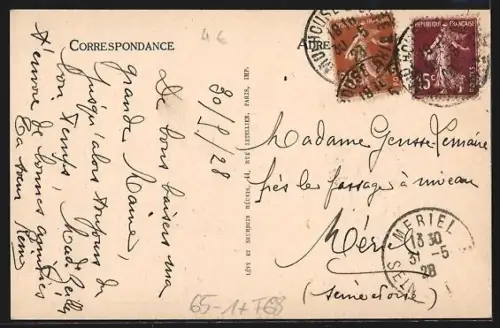 CORRESPONDANCE
4€
30/5/28
De bons baisers ma
grande Marie,
jusqu'alors toujours du
bon temps, Mad
t'envoie de bonnes amitiés
Ta sœur
LÉVY ET NEURDEIN RÉUNIS, 44, RUE LETELLIER, PARIS, IMP.
ADRE
RÉPUBLIQUE FRANÇAISE
POSTES
15c
Madame
près le passage à niveau
Mériel
(Seine et Oise)
MERIEL
18 30
-5
28
SEINE
65-1*TGB